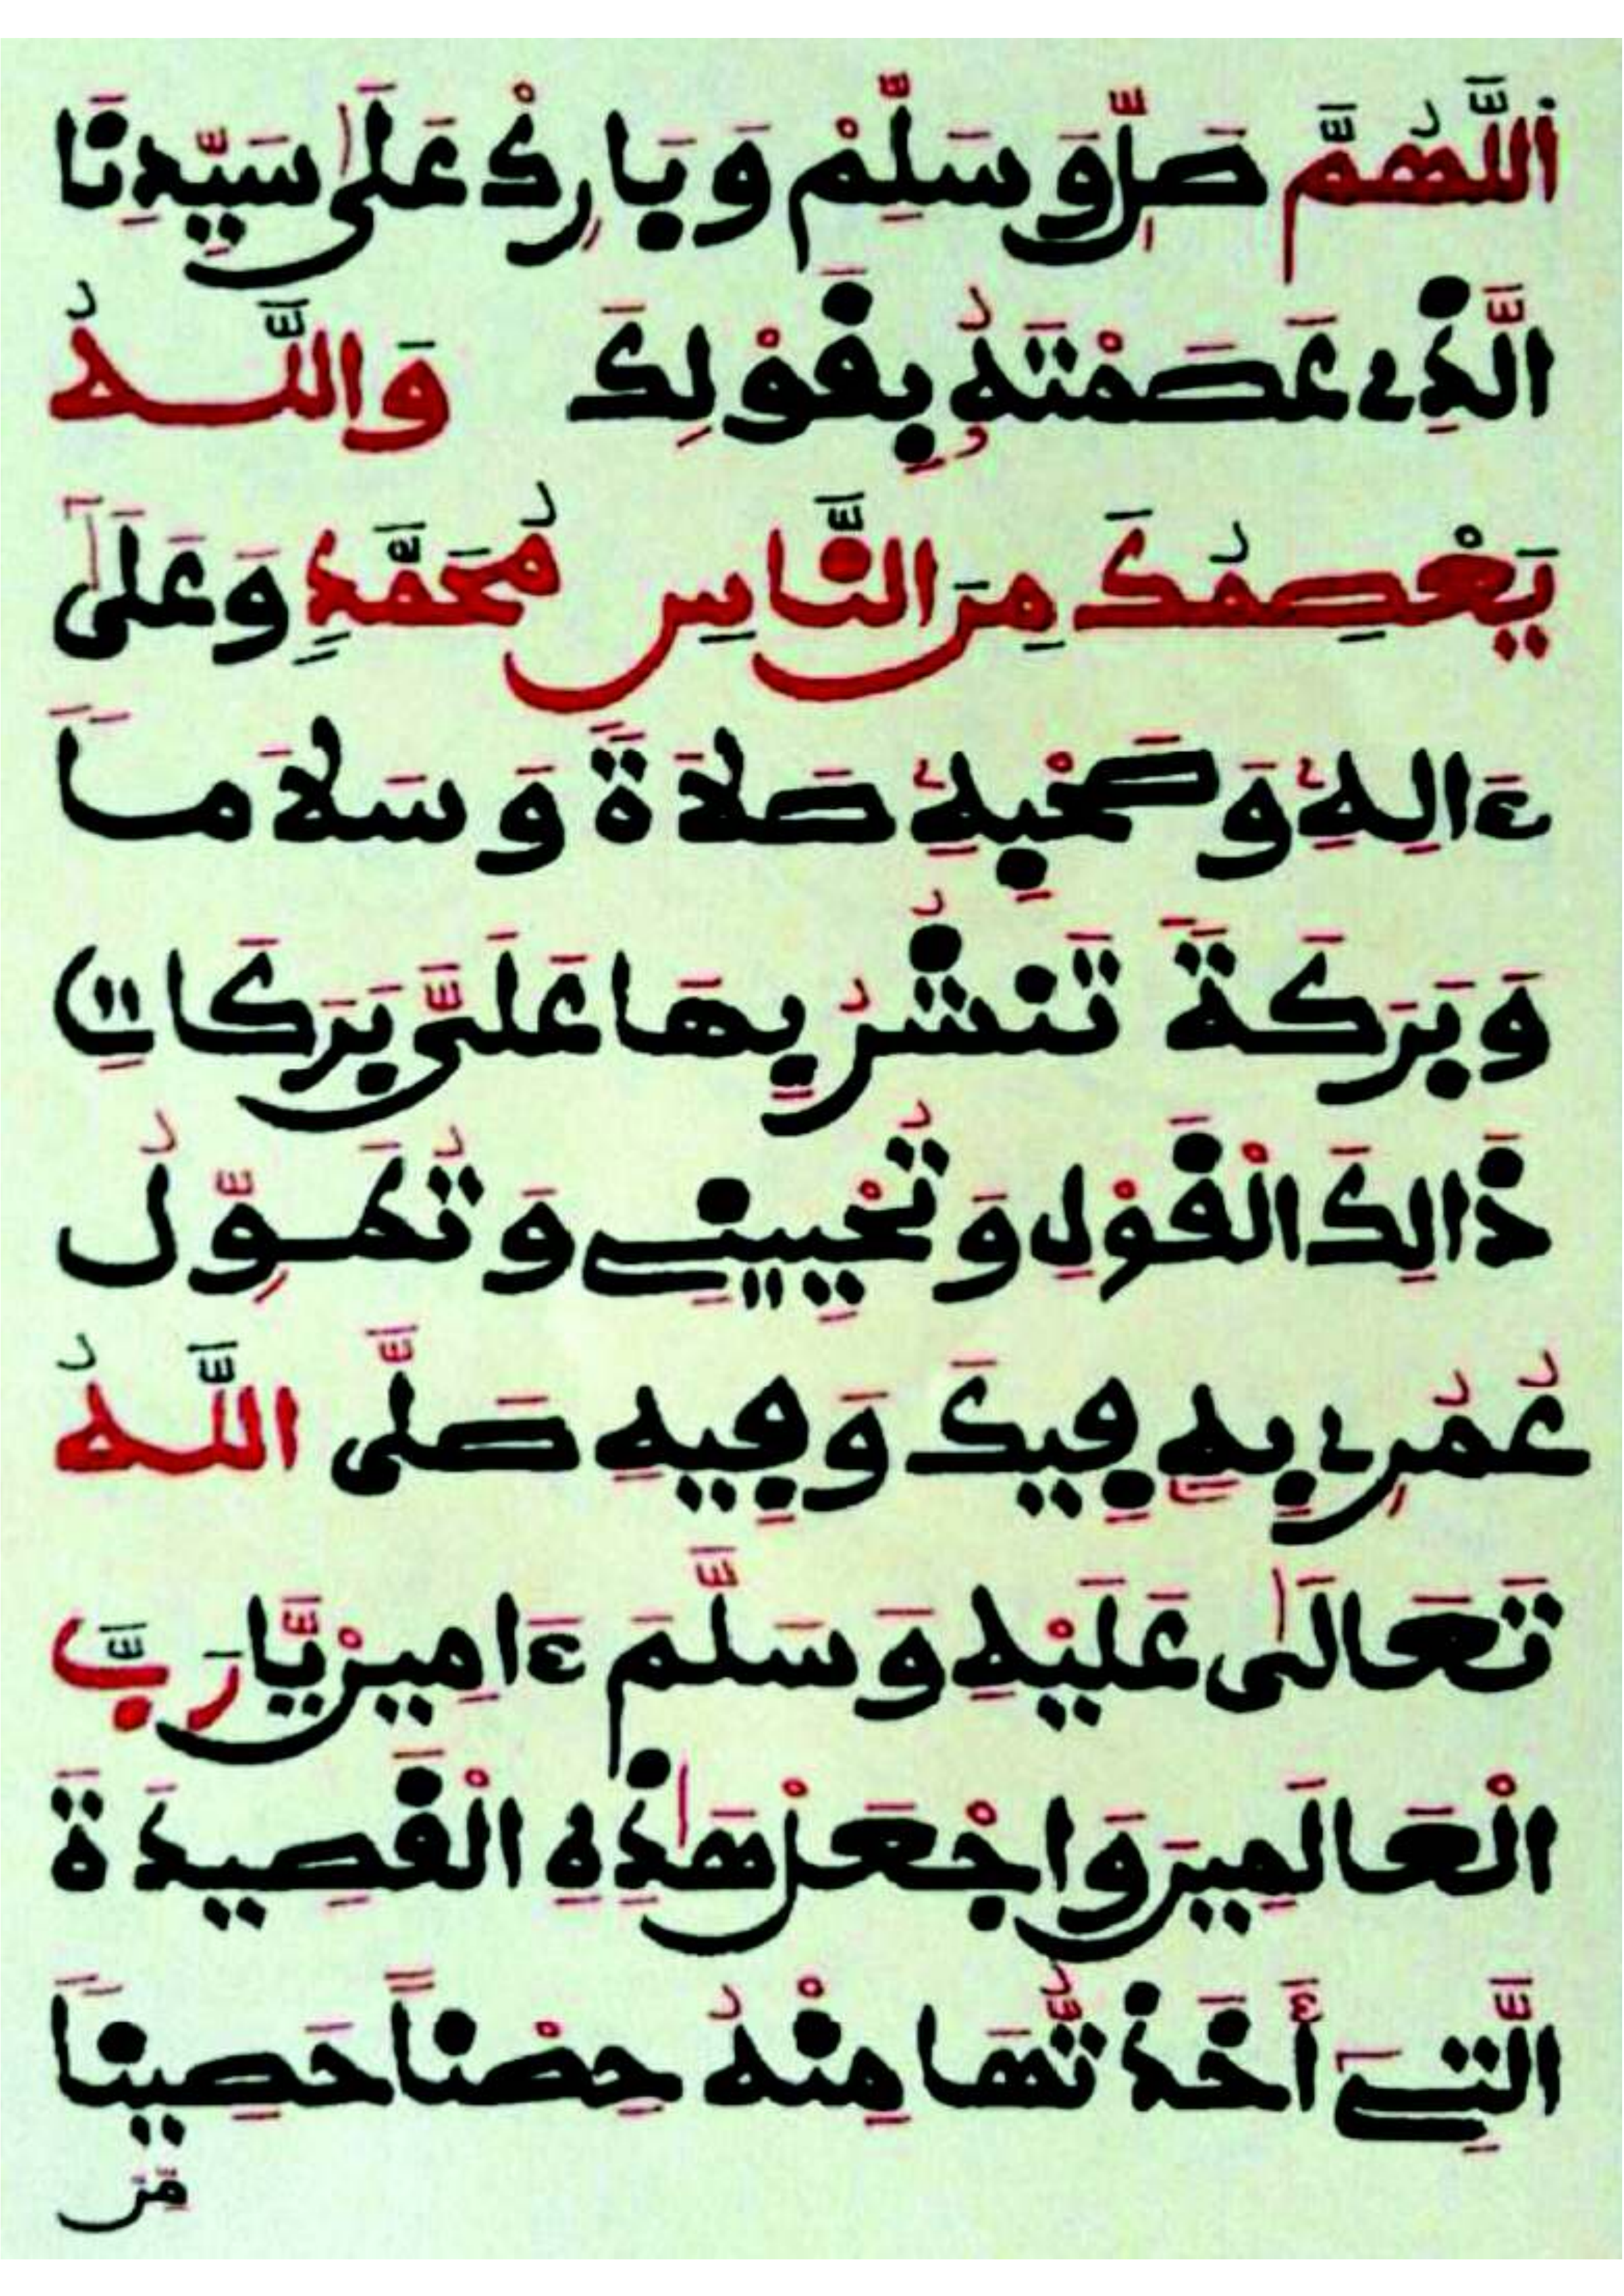 اَللَّهُمَّ صَلِّ وَسَلِّمْ وَبَارِكْ عَلَىٰ سَيِّدِنَا
الَّذِے عَصَمْتَهُۥ بِقَوْلِكَ وَاللَّهُ
يَعْصِمُكَ مِنَ النَّاسِ مُحَمَّدٍ وَعَلَىٰٓ
ءَالِهِۦ وَصَحْبِهِۦ صَلَاةً وَسَلَاماً
وَبَرَكَةً تَنشُرُ بِهَا عَلَىَّ بَرَكَاتِ
ذَالِكَ الْقَوْلِ وَتُحْيِينِے وَتُهَوِّلُ
عُمُرِے بِهِۦ فِيكَ وَفِيهِ صَلَّى اللَّهُ
تَعَالَىٰ عَلَيْهِ وَسَلَّمَ ءَامِينْ يَّا رَبَّ
الْعَالَمِينَ وَاجْعَلْ هَٰذِهِ الْقَصِيدَةَ
الَّتِےٓ أَخَذتُّهَا مِنْهُ حِصْناً حَصِيناً
مِّنَ